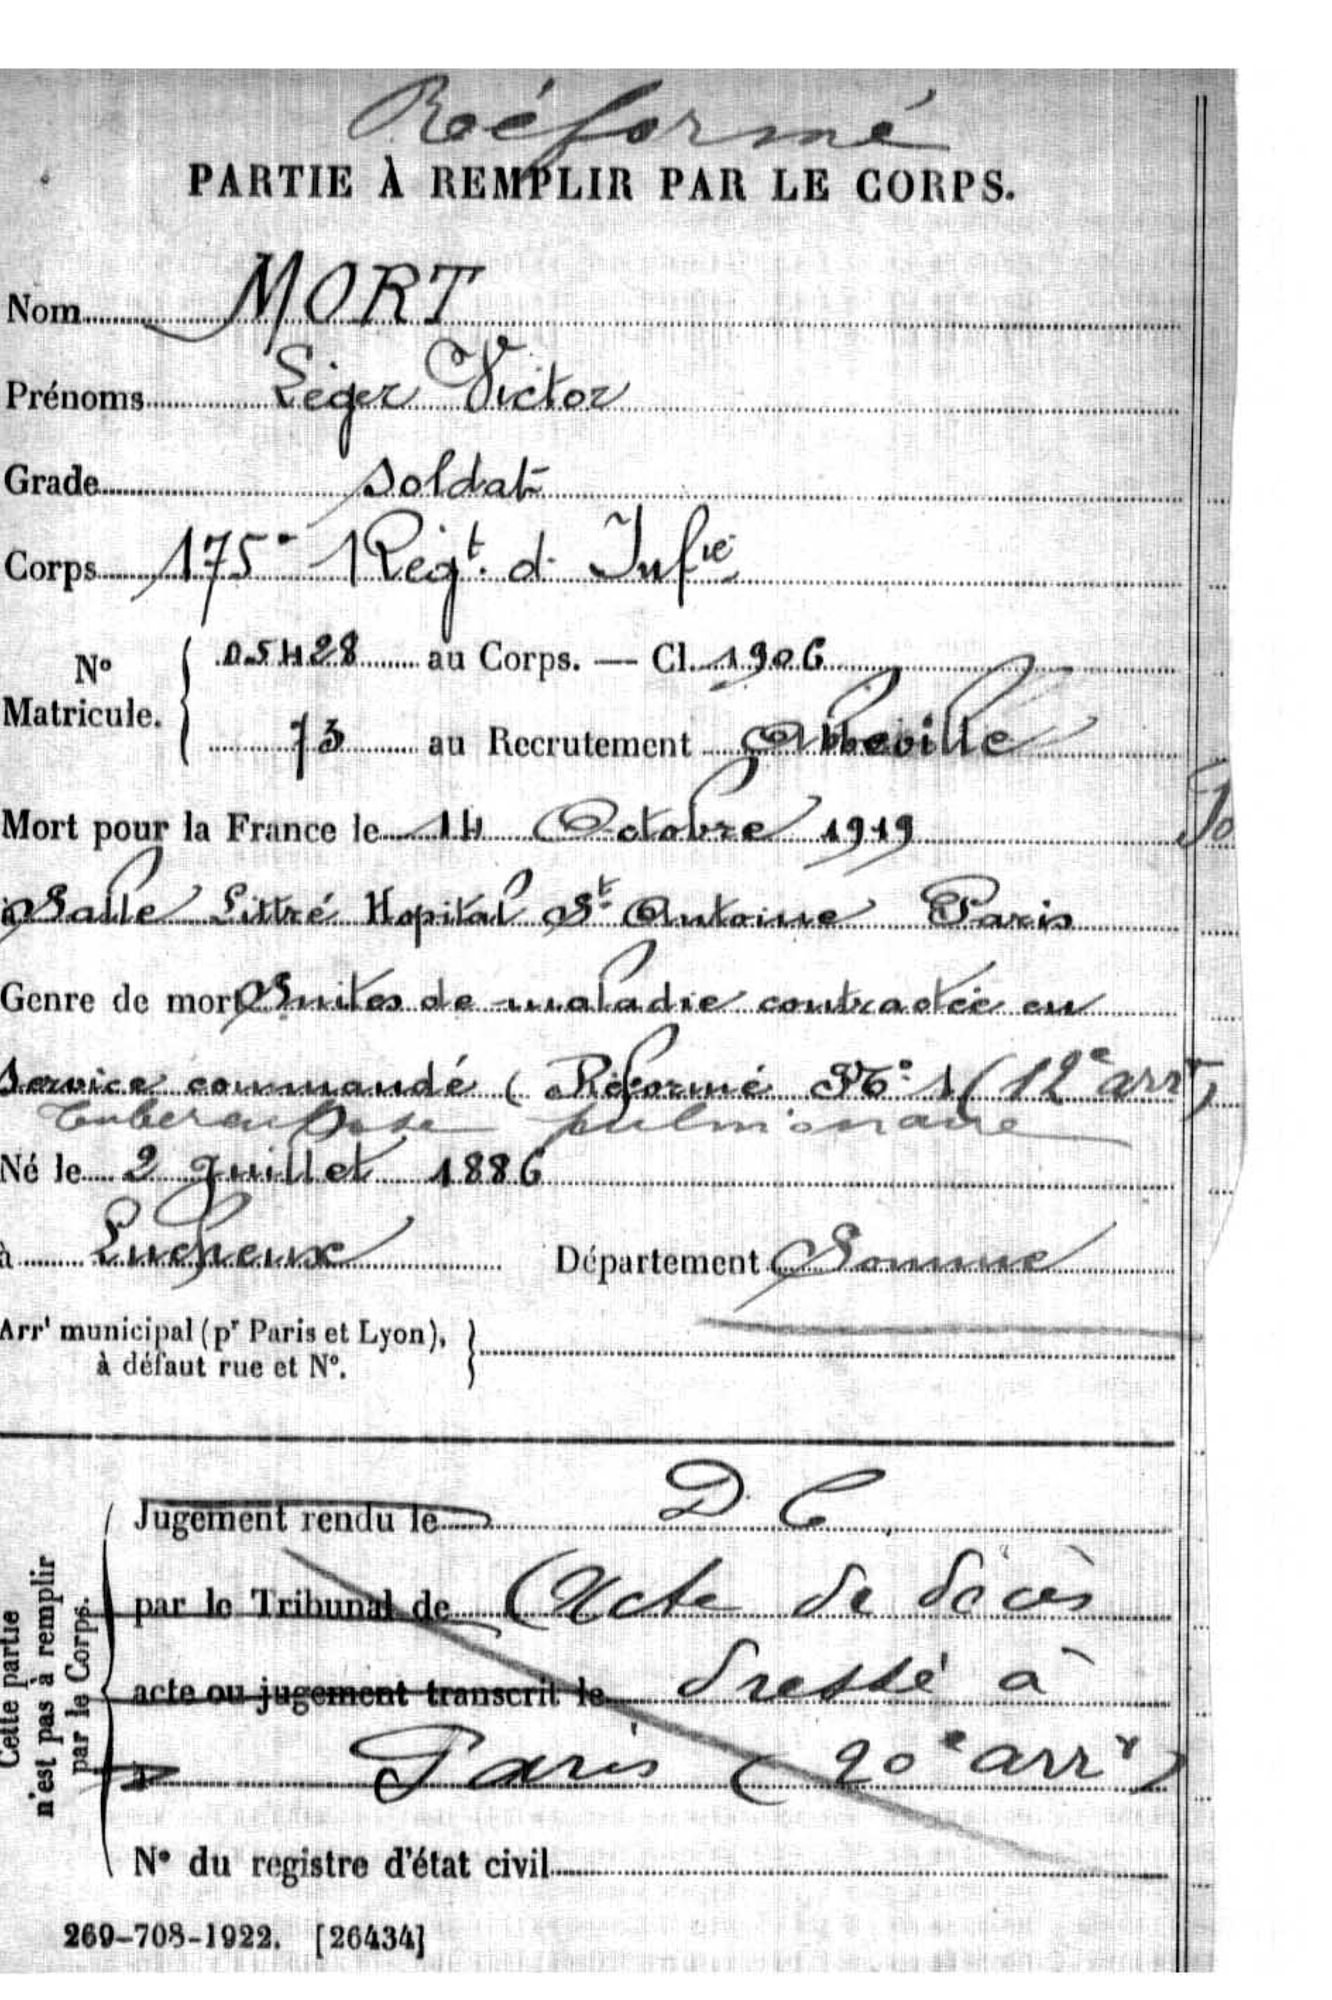 Réformé
PARTIE À REMPLIR PAR LE CORPS.
Nom MORT
Prénoms Léger Victor
Grade soldat
Corps 175e Régt. d. Infie
No Matricule. { 05428 au Corps. — Cl. 1906
73 au Recrutement Abbeville
Mort pour la France le 14 Octobre 1919
à Salle Littré Hopital St. Antoine Paris
Genre de mort Suites de maladie contractée en
service commandé ( Réformé No. 1 (12e arrt)
Tuberculose pulmonaire
Né le 2 Juillet 1886
à Lucheux Département Somme
Arrt municipal (pr Paris et Lyon),
à défaut rue et No.
Cette partie
n'est pas à remplir
par le Corps.
Jugement rendu le D. C.
par le Tribunal de (Acte de décès
acte ou jugement transcrit le dressé à
à Paris (20e arrt)
No du registre d'état civil
269-708-1922. [26434]